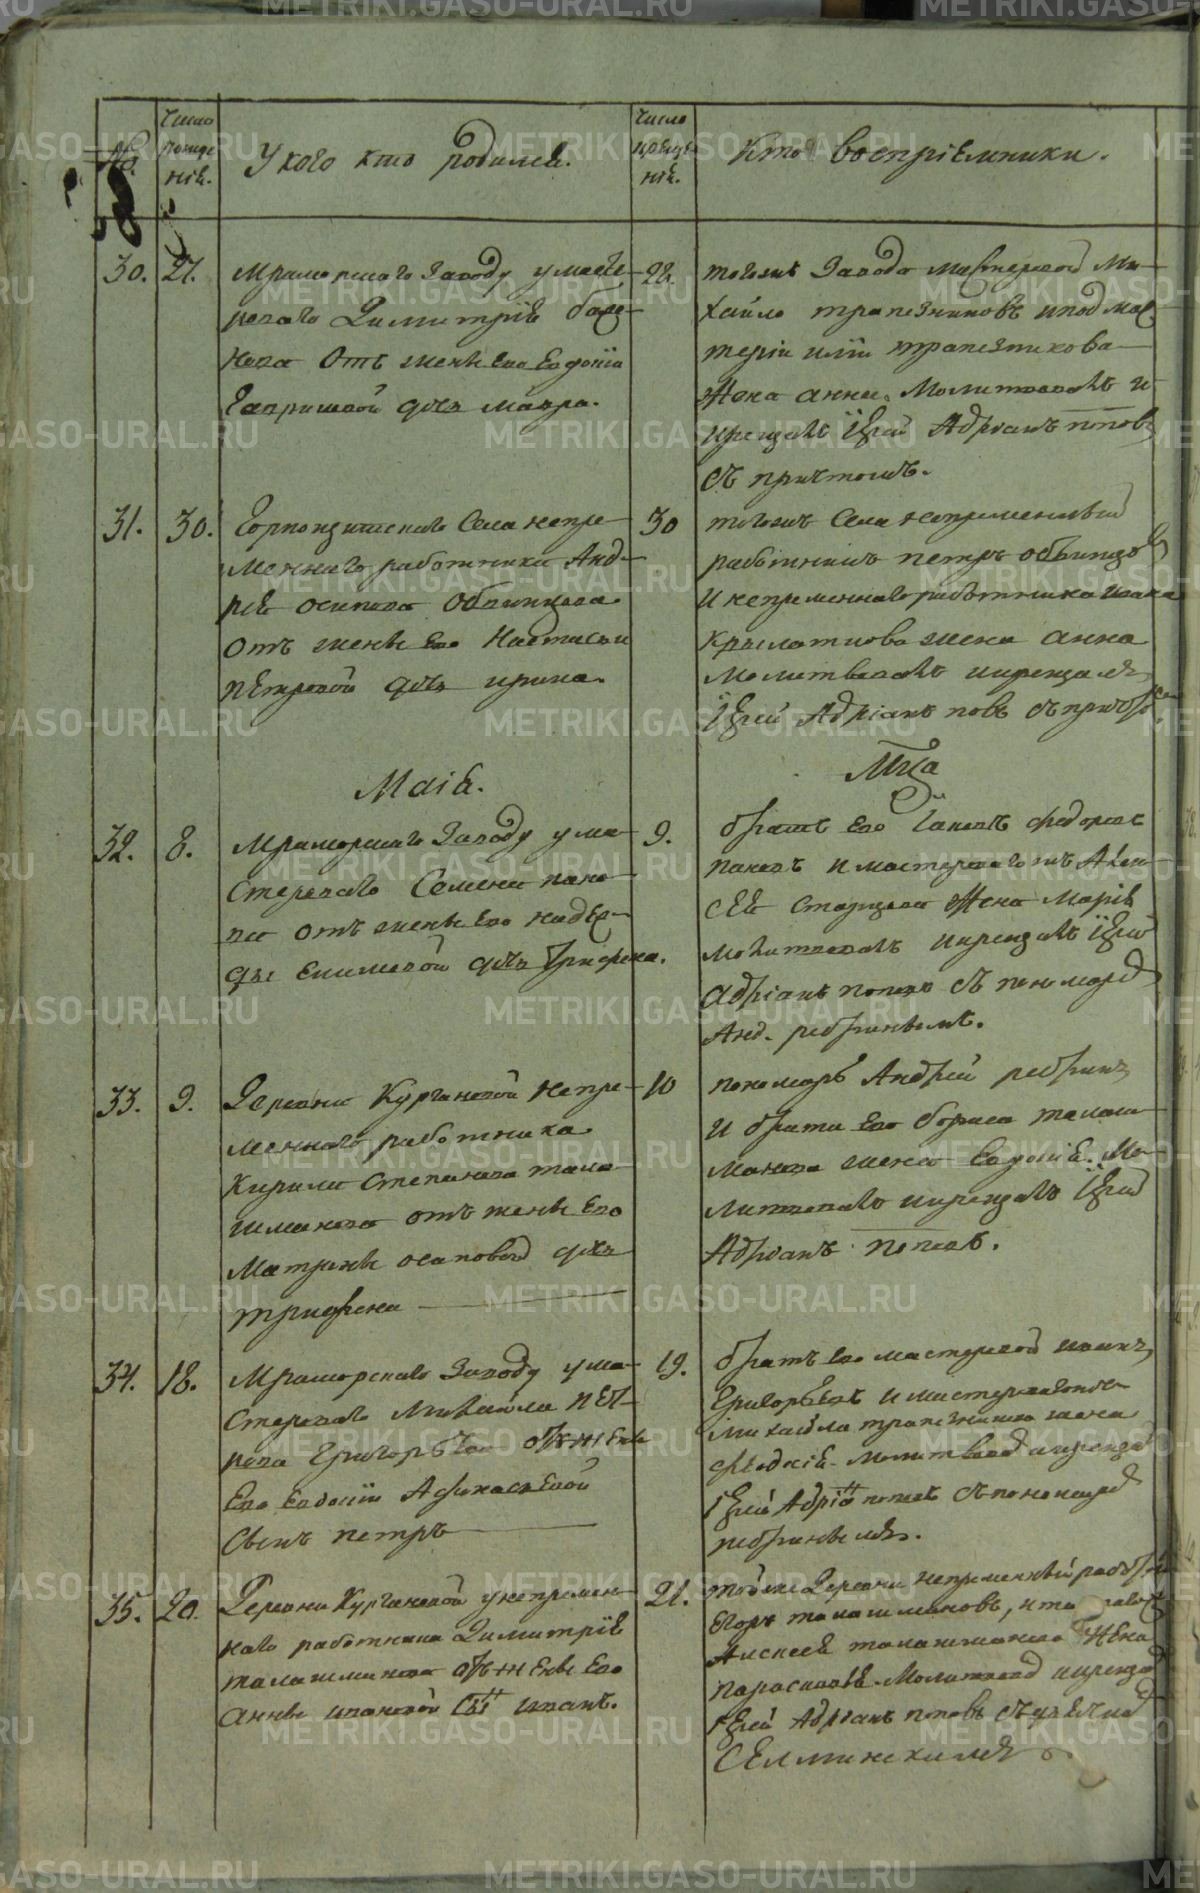 №.
Число рожде нія.
У кого кто родился.
Число креще нія.
Кто воспріемники.
30. 27.
Мраморскаго Заводу у масте-
роваго Димитріѣ
нова Отъ жены Его Евдокіи
Гавриловой дочь Мавра.
28.
тогожъ Завода Мастеровой Ми-
хайло трапезниковъ и подмас-
терья трапезникова
Жена анна. Молитвовалъ и
крещалъ Іерей Адріанъ поповъ
съ причтомъ.
31. 30.
Горнощитскаго Села непре-
меннаго работника Анд-
рея осипова Обвинцова
Отъ жены Его Настасьи
Петровой дочь ирина.
30
тогожъ Села непременный
работникъ петръ обвинцовъ
И непременнаго работника
Крылаткова жена анна
Молитвовалъ и крещалъ
Іерей Адріанъ повъ съ причто
Маія.
Мца
32. 8.
Мраморскаго Заводу у ма-
стероваго Семена пано-
ва отъ жены Его надеж-
ды Екимовой дочь Трифена.
9.
братъ Его федоровъ
пановъ и мастероваго жъ Алек-
сея Старцова Жена Маріѣ
молитвовалъ и крещалъ Іерей
Адріанъ поповъ Съ пономаремъ
Анд. ребринымъ.
33. 9.
Деревни Кургановой Непре-
меннаго работника
Кирила Степанова тала-
шманова отъ жены Его
Матрены осиповой дочь
трифена
10
пономарь Андрей ребринъ
И брата Его бориса талаш-
манова жена Евдокія. Мо-
литвовалъ и крещалъ Іерей
Адріанъ поповъ.
34. 18.
Мраморскаго Заводу у ма-
стероваго Михаила пет-
рова Григорьева отъ жены
Его Евдокіи Афанасьевой
Сынъ петръ
19.
братъ Его мастеровой иванъ
Григорьевъ и мастероваго
Михайла трапезникова жена
феодосія. Молитвовалъ и крещалъ
Іерей Адріанъ поповъ съ пономаремъ
ребринымъ.
35. 20.
Деревни Кургановой у непремен-
наго работника Димитріѣ
талашманова отъ жены Его
Анны ивановой Сынъ иванъ.
21.
тойже Деревни непременный работникъ
Егоръ талашмановъ, и та
Алексея талашманова Жена
параскова. Молитвовал и крещал
Іерей Адріанъ поповъ съ
METRIKI.GASO-URAL.RU